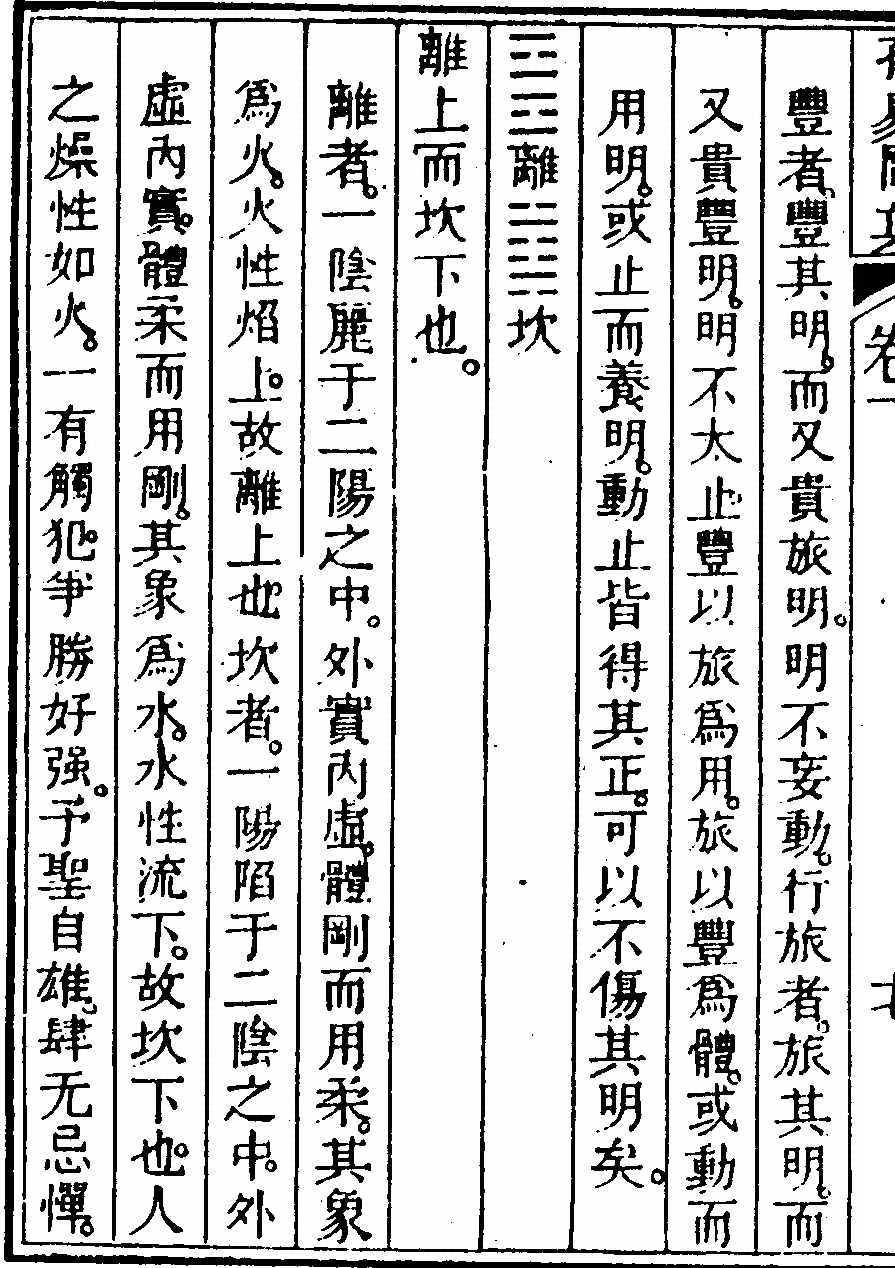 豐者。豐其明。而又貴旅明。明不妄動。行旅者。旅其明。而
又貴豐明。明不太止。豐以旅為用。旅以豐為體。或動而
用明。或止而養明。動止皆得其正。可以不傷其明矣。
䷝離䷜坎
離上而坎下也。
離者。一陰麗于二陽之中。外實內虛。體剛而用柔。其象
爲火。火性焰上。故離上也。坎者。一陽陷于二陰之中。外
虛內實。體柔而用剛。其象爲水。水性流下。故坎下也。人
之燥性如火。一有觸犯。爭勝好强。予聖自雄。肆无忌憚。